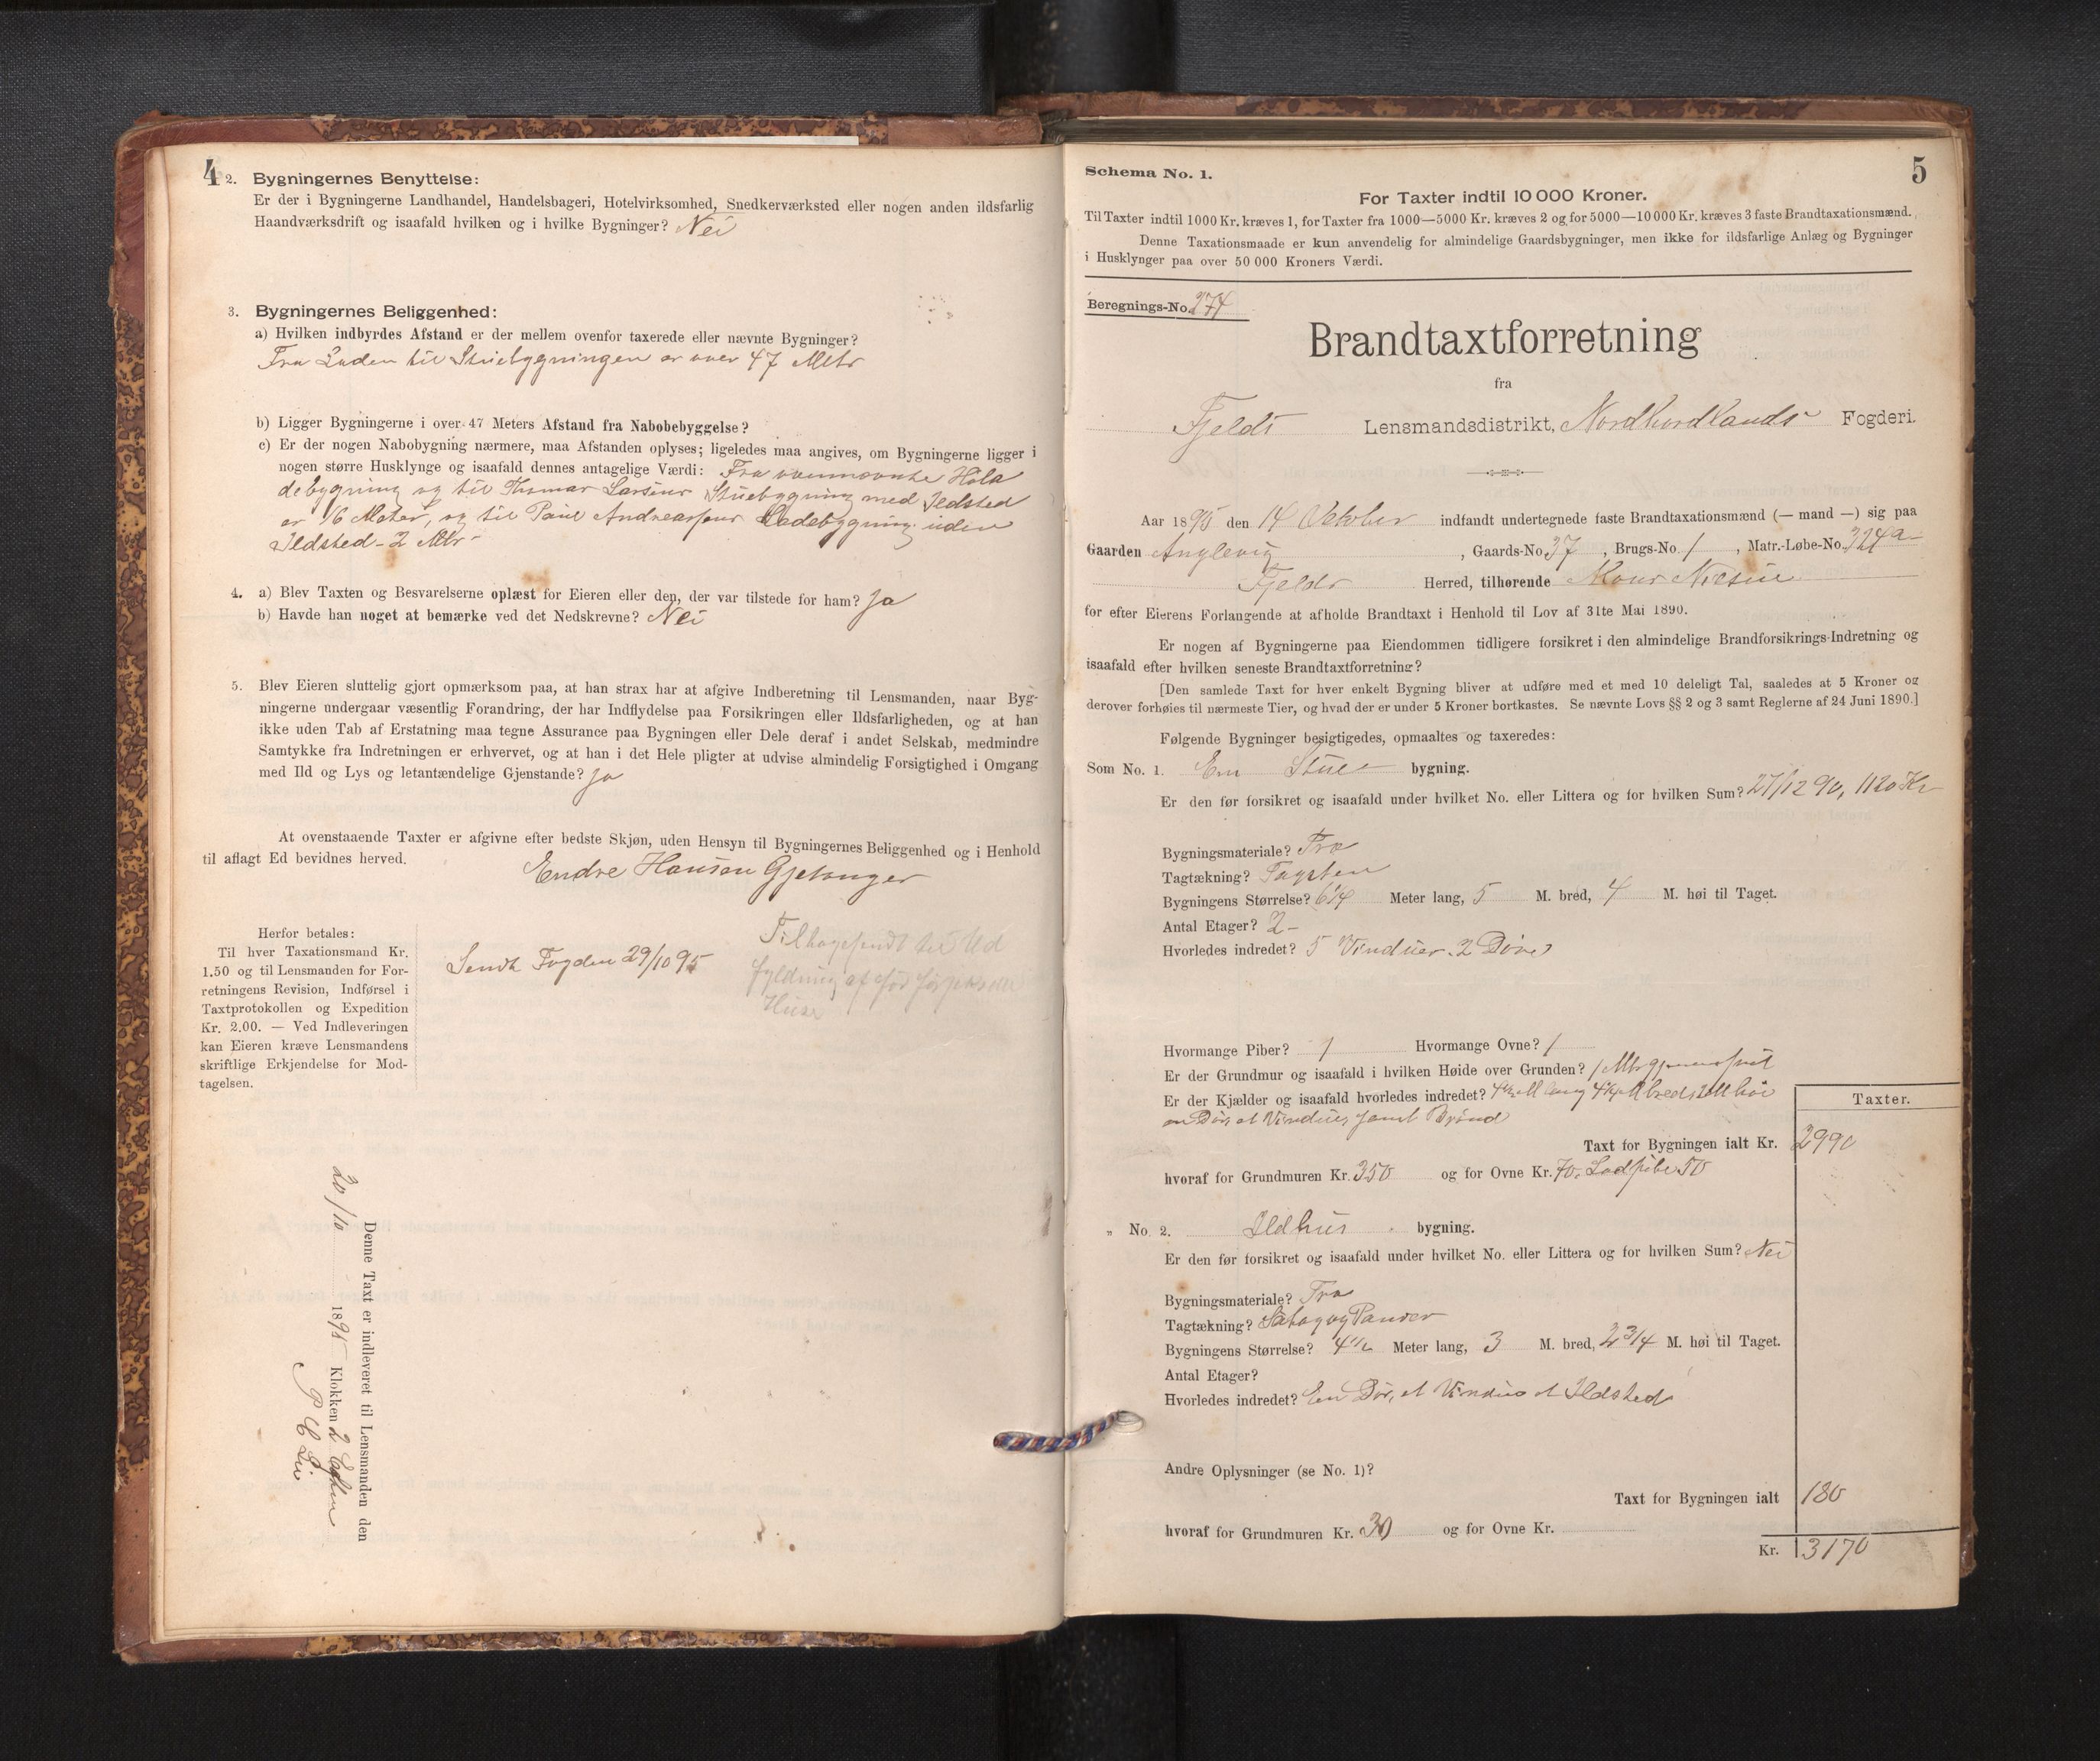 4
2. Bygningernes Benyttelse:
Er der i Bygningerne Landhandel, Handelsbageri, Hotelvirksomhed, Snedkerværksted eller nogen anden ildsfarlig
Haandværksdrift og isaafald hvilken og i hvilke Bygninger? Nei
3. Bygningernes Beliggenhed:
a) Hvilken indbyrdes Afstand er der mellem ovenfor taxerede eller nævnte Bygninger?
Fra Laden til Stuebygningen er over 47 Mtr
b) Ligger Bygningerne i over 47 Meters Afstand fra Nabobebyggelse?
c) Er der nogen Nabobygning nærmere, maa Afstanden oplyses; ligeledes maa angives, om Bygningerne ligger i
nogen større Husklynge og isaafald dennes antagelige Værdi: Fra ovennævnte
debygning og til Thomas Larsens Stuebygning med Ildsted
er 16 Meter, og til Paul Andreassens Ladebygning uden
Ildsted - 2 Mtr -
4. a) Blev Taxten og Besvarelserne oplæst for Eieren eller den, der var tilstede for ham? Ja
b) Havde han noget at bemærke ved det Nedskrevne? Nei
5. Blev Eieren sluttelig gjort opmærksom paa, at han strax har at afgive Indberetning til Lensmanden, naar Byg-
ningerne undergaar væsentlig Forandring, der har Indflydelse paa Forsikringen eller Ildsfarligheden, og at han
ikke uden Tab af Erstatning maa tegne Assurance paa Bygningen eller Dele deraf i andet Selskab, medmindre
Samtykke fra Indretningen er erhvervet, og at han i det Hele pligter at udvise almindelig Forsigtighed i Omgang
med Ild og Lys og letantændelige Gjenstande? Ja
At ovenstaaende Taxter er afgivne efter bedste Skjøn, uden Hensyn til Bygningernes Beliggenhed og i Henhold
til aflagt Ed bevidnes herved.
Endre Hansen Gjetanger
Herfor betales:
Til hver Taxationsmand Kr.
1.50 og til Lensmanden for For-
retningens Revision, Indførsel i
Taxtprotokollen og Expedition
Kr. 2.00. — Ved Indleveringen
kan Eieren kræve Lensmandens
skriftlige Erkjendelse for Mod-
tagelsen.
Sendt Fogden 29/10 95
Tilbagesendt til Ud
fyldning af før
Huse
Denne Taxt er indleveret til Lensmanden den
20/10 1895 Klokken 2 Eftm
5
Schema No. 1.
For Taxter indtil 10 000 Kroner.
Til Taxter indtil 1000 Kr. kræves 1, for Taxter fra 1000—5000 Kr. kræves 2 og for 5000—10 000 Kr. kræves 3 faste Brandtaxationsmænd.
Denne Taxationsmaade er kun anvendelig for almindelige Gaardsbygninger, men ikke for ildsfarlige Anlæg og Bygninger
i Husklynger paa over 50 000 Kroners Værdi.
Beregnings-No. 274
Brandtaxtforretning
fra
Fjelds Lensmandsdistrikt, Nordhordlands Fogderi.
Aar 1895 den 14 Oktober indfandt undertegnede faste Brandtaxationsmænd (— mand —) sig paa
Gaarden Anglevig, Gaards-No. 37, Brugs-No. 1, Matr.-Løbe-No. 324a
Fjelds Herred, tilhørende Mons Nilsen
for efter Eierens Forlangende at afholde Brandtaxt i Henhold til Lov af 31te Mai 1890.
Er nogen af Bygningerne paa Eiendommen tidligere forsikret i den almindelige Brandforsikrings-Indretning og
isaafald efter hvilken seneste Brandtaxtforretning?
[Den samlede Taxt for hver enkelt Bygning bliver at udføre med et med 10 deleligt Tal, saaledes at 5 Kroner og
derover forhøies til nærmeste Tier, og hvad der er under 5 Kroner bortkastes. Se nævnte Lovs §§ 2 og 3 samt Reglerne af 24 Juni 1890.]
Følgende Bygninger besigtigedes, opmaaltes og taxeredes:
Som No. 1. En Stue bygning.
Er den før forsikret og isaafald under hvilket No. eller Littera og for hvilken Sum? 27/12 90, 1120 Kr
Bygningsmateriale? Træ
Tagtækning? Tagsten
Bygningens Størrelse? 6 1/4 Meter lang, 5 M. bred, 4 M. høi til Taget.
Antal Etager? 2 -
Hvorledes indredet? 5 Vinduer. 2 Døre
Hvormange Piber? 1 Hvormange Ovne? 1
Er der Grundmur og isaafald i hvilken Høide over Grunden? 1 Mtr
Er der Kjælder og isaafald hvorledes indredet? 4 1/2 M lang 4 1/4 M bred 2 M høi
en Dør, et Vindue, samt Brønd
Taxter.
Taxt for Bygningen ialt Kr. 2990
hvoraf for Grundmuren Kr. 350 og for Ovne Kr. 70. 50
„ No. 2. Ildhus bygning.
Er den før forsikret og isaafald under hvilket No. eller Littera og for hvilken Sum? Nei
Bygningsmateriale? Træ
Tagtækning?
Bygningens Størrelse? 4 1/2 Meter lang, 3 M. bred, 2 3/4 M. høi til Taget.
Antal Etager?
Hvorledes indredet? En Dør, et Vindue et Ildsted
Andre Oplysninger (se No. 1)?
Taxt for Bygningen ialt 180
hvoraf for Grundmuren Kr. 30 og for Ovne Kr.
Kr. 3170